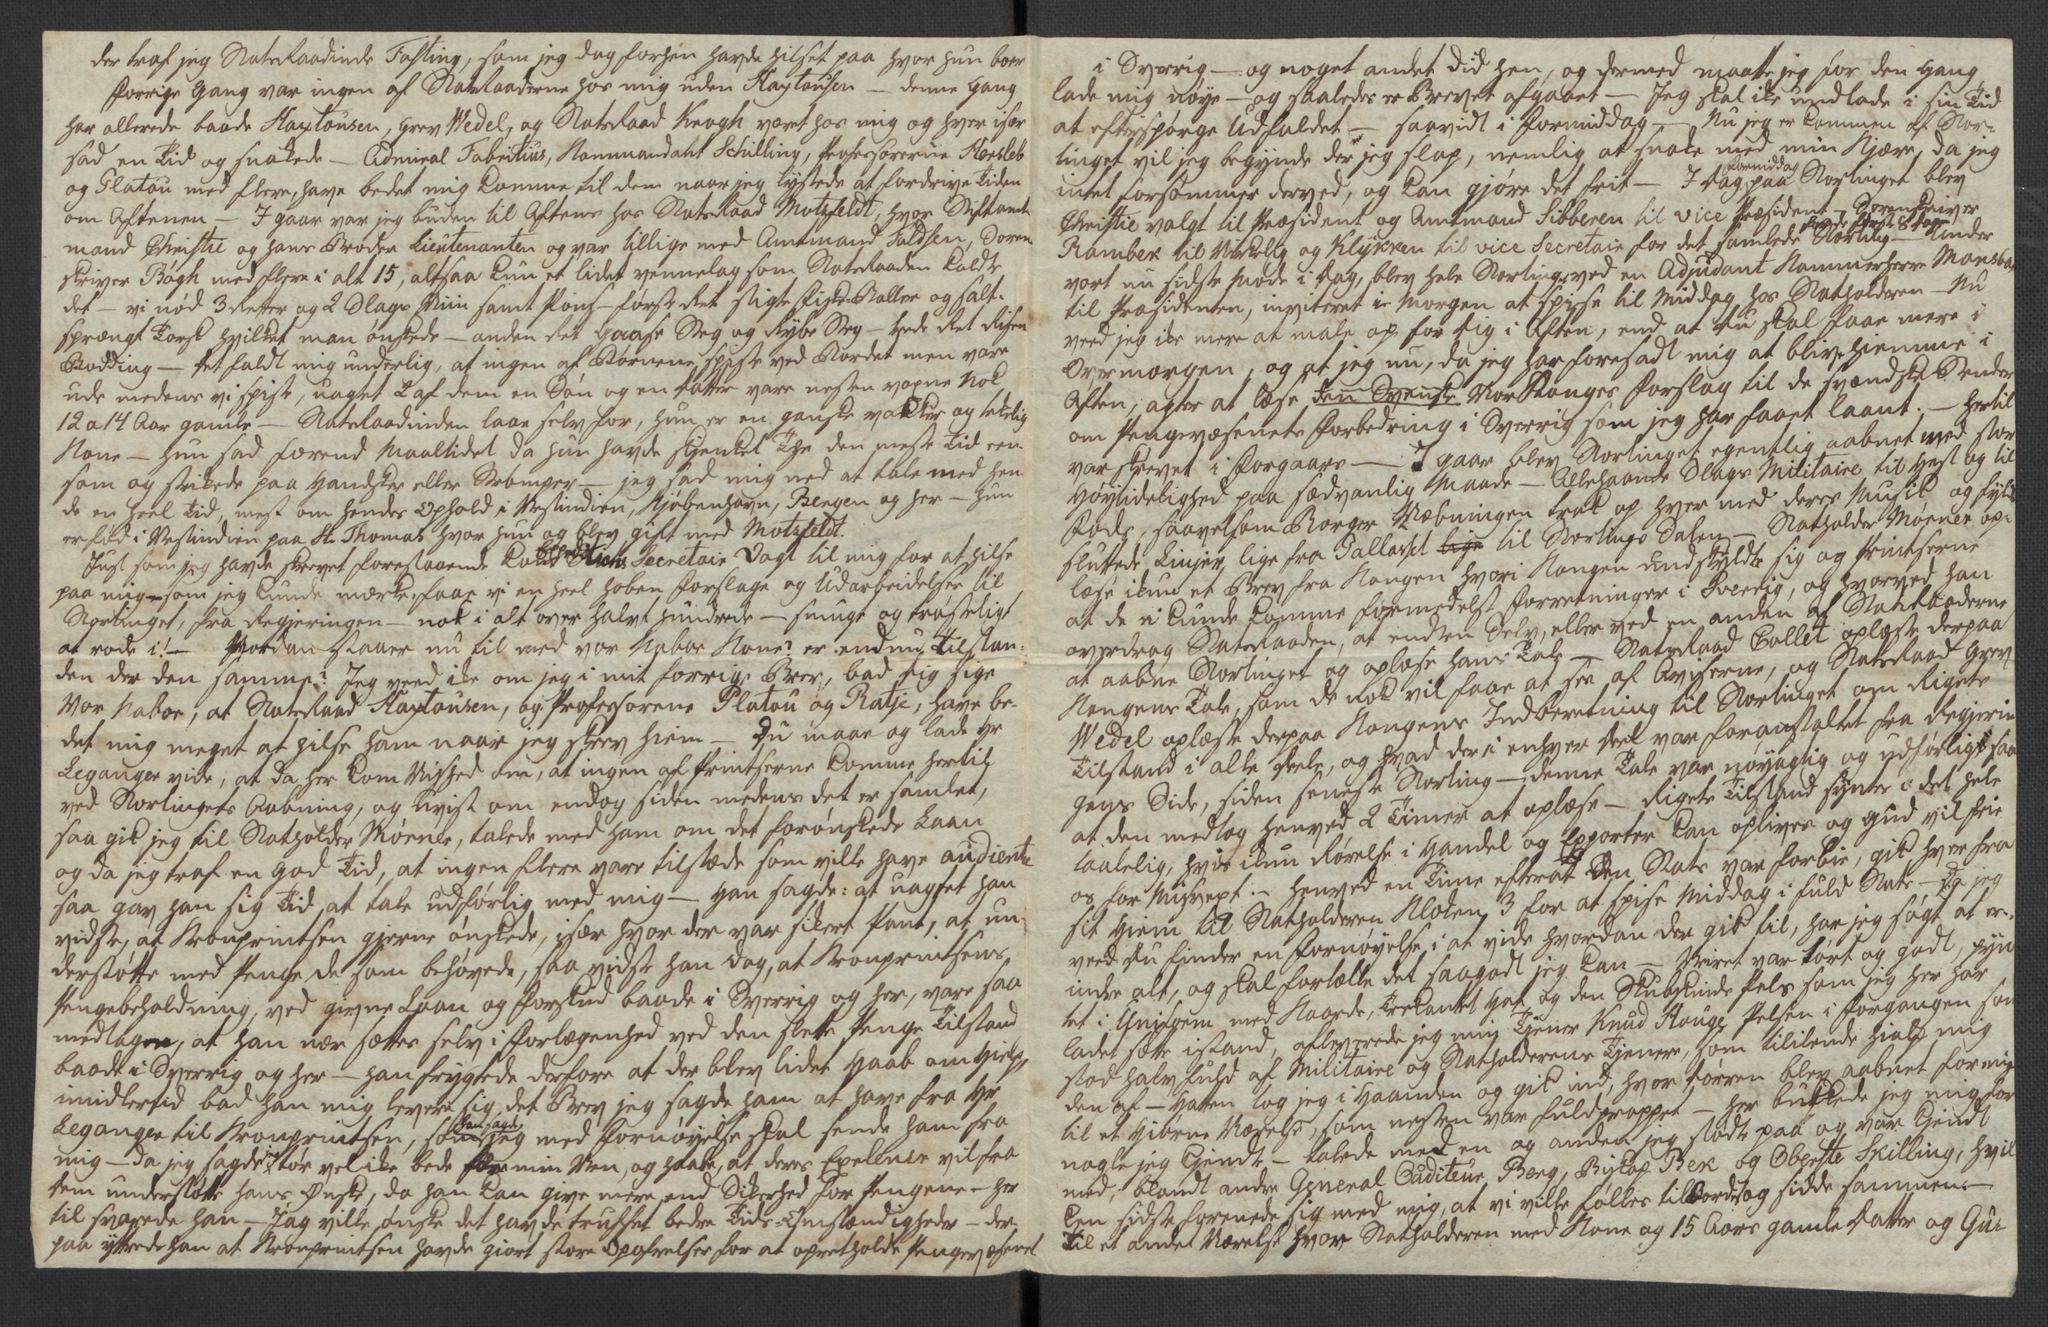 der traf jeg StatsRaadinde Fasting, som jeg dog forhen havde hilset paa hvor hun boer
forrige Gang var ingen af StatsRaaderne hos mig uden Haxtousen — denne Gang
har allerede baade Haxtousen, Grev Wedel, og StatsRaad Krogh været hos mig og hver især
sad en Tid og snakede — Admiral Fabritius, Kommandant Schilling, Professorerne Hersleb
og Platou med flere, have bedet mig komme til dem naar jeg lystede at fordrive Tiden
om Aftenen — I gaar var jeg buden til Aftens hos StatsRaad Motzfeldt, hvor Stiftamt-
mand Christie og hans Broder Lieutenanten og var tillige med Amtmand Faldsen, Soren-
skriver Bagh med flere i alt 15, altsaa kun et lidet vennelag som StatsRaaden kaldte
det — vi nød 3 Retter og 2 Slags Viin samt Pons — første Ret stigte Fiske Baller og salt-
sprængt Torsk hvilket man ønskede — anden Ret Gaase Steg og Rybe Steg — 3ede Ret Risen
Budding — det faldt mig underlig, at ingen af Børnene spiste ved Bordet men vare
ude medens vi spiste, uagtet 2 af dem en Søn og en Datter vare nesten voxne Nok
12 a 14 Aar gamle — StatsRaadinden laae selv for, hun er en ganske vakker og artig
Kone — hun sad førend Maaltidet da hun havde skjenket The den meste Tid een-
som og strikede paa Handsker eller Strømper — jeg sad mig ned at tale med hen-
de en heel Tid, mest om hendes Ophold i Vestindien, Kjøbenhavn, Bergen og her — Hun
er fød i Vestindien paa St. Thomas hvor hun og blev gift med Motzfeldt.
Just som jeg havde skrevet forestaaende kom Secretair Vogt til mig for at hilse
paa mig — som jeg kunde mærke, faae vi en heel hoben Forslage og Udarbeidelser til
Stortinget, fra Regjeringen — nok i alt over halvt hundrede — smugt og trøsteligt
at rode i! — Hvordan staaer nu til med vor Nabor Kone? er endnu Tilstan-
den der den samme? Jeg veed ike om jeg i mit forrige Brev, bad dig sige
Vor Nabor, at StatsRaad Haxtousen, og Professorene Platou og Ratje, have be-
det mig meget at hilse ham naar jeg skrev hiem — Du maae og lade Hr
Leganger vide, at da her kom Vished om, at ingen af Printserne komme hertil
ved Stortingets Aabning, og uvist om endog siden medens det er samlet,
saa gik jeg til Statholder Mørner, talede med ham om det forønskede Laan
og da jeg traf en god Tid, at ingen flere vare tilstæde som ville have audience
saa gav han sig Tid at tale udførlig med mig — Han sagde: at uagtet han
vidste, at Kronprintsen gjerne ønskede, især hvor der var sikert Pant, at un-
derstøtte med Penge de som behøvede, saa vidste han dog, at Kronprintsens
Pengebeholdning, ved givne Laan og Forskud baade i Sverrig og her, vare saa
medtagen, at han nær sættes selv i Forlægenhed ved den slette Penge Tilstand
baade i Sverrig og her — han frygtede derfore at der blev lidet Haab om Hielp,
imidlertid bad han mig levere sig det Brev jeg sagde ham at have fra Hr
Leganger til Kronprintsen, som han sagde jeg med Fornøyelse skal sende ham fra
mig — da jeg sagde: tør vel ike bede for min Ven, og haabe, at deres Excelence vil fra
dem understøtte hans Ønske, da han kan give mere end Sikerhed for Pengene — her
til svarede han — Jag ville ønske det havde truffet bedre Tids-Omstændigheder — der-
paa yttrede han at Kronprintsen havde giort store Opofrelser for at opretholde Pengevæsenet
i Sverrig — og noget andet did hen, og dermed maatte jeg for den Gang
lade mig nøye — og saaledes er Brevet afgaaet — Jeg skal ike undlade i sin Tid
at efterspørge Udfaldet — saavidt i Formiddag — Nu jeg er kommen af Stor-
tinget vil jeg begynde der jeg slap, nemlig at snake med min Kjære, da jeg
intet forsømmer derved, og kan gjøre det frit — I dag Formiddag paa Stortinget blev
Christie valgt til Præsident og Amtmand Sibbern til vice Præsident — Sorenskriver
Rambek til Virkelig og Klykken til vice Secretair for det samlede Storting — Under
vort nu sidste Møde i Dag, blev hele Stortinget ved en Adjudant Kammerherre Mansbak
til Præsidenten, inviteret i Morgen at spise til Middag hos Statholderen — Nu
veed jeg ike mere at male op for dig i Aften, end at du skal faae mere i
Overmorgen, og at jeg nu, da jeg har foresadt mig at blive hiemme i
Aften, agter at læse den Svenske VorKonges Forslag til de svændske Stender
om Pengevæsenets Forbedring i Sverrig som jeg har faaet laant. — hertil
var skrevet i Forgaars — I gaar blev Stortinget egentlig aabnet med stor
Høytidelighed paa sædvanlig Maade — Allehaande Slags Militaire til Hest og til
Fods, saavelsom Borger Væbningen trak op hver med deres Musik og fyldte
sluttede Linier, lige fra Palladset til Stortings Salen — Statholder Mørner op-
læste ikun et Brev fra Kongen hvori Kongen undskyldte sig og Printserne
at de ei kunde komme formedelst Forretninger i Sverrig, og hvorved han
overdrog StatsRaaden, at endten Selv, eller ved en anden af StatsRaaderne
at aabne Stortinget og oplæse hans Tale — StatsRaad Collet oplæste derpaa
Kongens Tale, som de nok vil faae at see af Aviserne, og StatsRaad Grev
Wedel oplæste derpaa Kongens Indberetning til Stortinget om Rigets
Tilstand i alle Deele, og hvad der i enhver Deel var foranstaltet fra Regjerin-
gens Side, siden seneste Storting — denne Tale var nøyagtig og udførligt saa
at den medtog henved 2 Timer at oplæse — Rigets Tilstand syntes i det hele
taalelig, hvis ikun Rørelse i Handel og Exporter kan oplives og Gud vil frie
os for Misvext. — henved en Time efterat den Stats var forbie, gik hver fra
sit Hiem til Statholderen Kloken 3 for at spise Middag i fuld Stats — Da jeg
veed du finder en Fornøyelse i at vide hvordan der gik til, har jeg søgt at er-
indre alt, og skal fortælle det saagodt jeg kan — Veiret var tørt og godt, pyn-
tet i Uniform med Kaarde, Trekantet Hat og den Skubskinds Pels som jeg her har
ladet sætte istand, afleverede jeg min Tjener Knud Hauge Pelsen i Forgangen som
stod halv fuld af Militaire og Statholderens Tjenere, som tililende hialp mig
den af — Hatten tog jeg i Haanden og gik ind, hvor Dørren blev aabnet for mig
til et Hiørne Værelse, som nesten var fuldproppet — her bukkede jeg mig for
nogle jeg kjendte — talede med en og anden jeg stødte paa og var kjendt
med, blandt andre General Auditeur Berg, Biskop Bek og Oberste Skilling, hvil-
ken sidste forenede sig med mig, at vi ville følles til Bords og sidde sammen —
til et andet Værelse hvor Statholderen med Kone og 15 Aars gamle Datter og Gui-